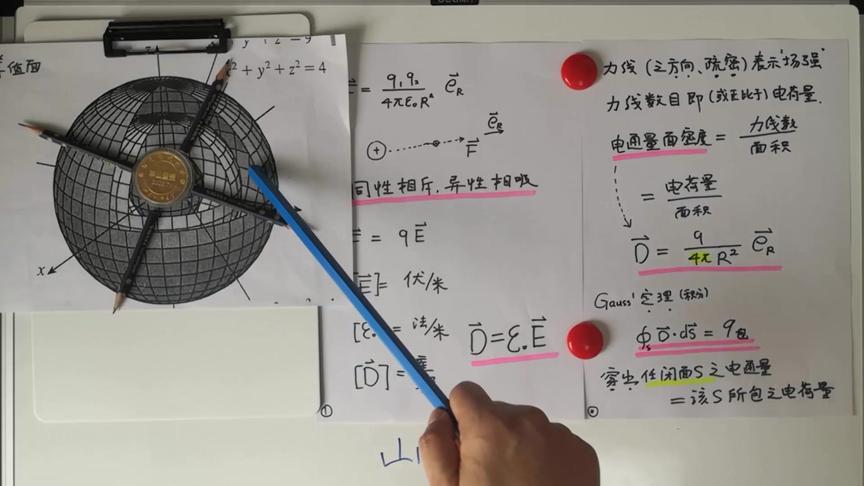 等值面
x² + y² + z² = 4
x
= q₁q₂ / 4πε₀R² e⃗R
+
e⃗R
F⃗
同性相斥，异性相吸
= qE⃗
E⃗]= 伏/米
[ε₀ = 法/米
[D⃗]=
D⃗=ε₀E⃗
①
力线(之方向、疏密)表示"场强"
力线数目即(或正比于)电荷量.
电通量面密度 = 力线数 / 面积
= 电荷量 / 面积
D⃗ = q / 4πR² e⃗R
Gauss' 定理(积分)
∮s D⃗·dS⃗ = q包
穿出任闭面S之电通量
=该S所包之电荷量